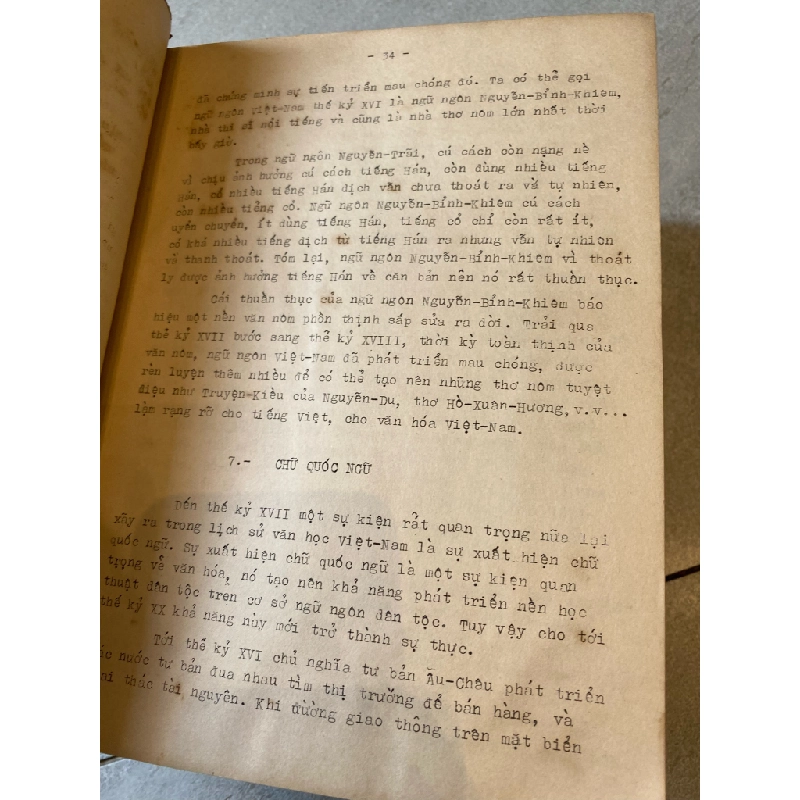 - 34 -
đã chứng minh sự tiến triển mau chóng đó. Ta có thể gọi
ngữ ngôn Việt-Nam thế kỷ XVI là ngữ ngôn Nguyễn-Bỉnh-Khiêm,
nhà thi sĩ nổi tiếng và cũng là nhà thơ nôm lớn nhất thời
bấy giờ.
Trong ngữ ngôn Nguyễn-Trãi, cú cách còn nạng nề
vì chịu ảnh hưởng cú cách tiếng Hán, còn dùng nhiều tiếng
Hán, có nhiều tiếng Hán dịch văn chưa thoát ra vẻ tự nhiên,
còn nhiều tiếng cổ. Ngữ ngôn Nguyễn-Bỉnh-Khiêm cú cách
uyển chuyển, ít dùng tiếng Hán, tiếng cổ chỉ còn rất ít,
có khá nhiều tiếng dịch từ tiếng Hán ra nhưng vẫn tự nhiên
và thanh thoát. Tóm lại, ngữ ngôn Nguyễn-Bỉnh-Khiêm vì thoát
ly được ảnh hưởng tiếng Hán về căn bản nên nó rất thuần thục.
Cái thuần thục của ngữ ngôn Nguyễn-Bỉnh-Khiêm báo
hiệu một nền văn nôm phồn thịnh sắp sửa ra đời. Trải qua
thế kỷ XVII bước sang thế kỷ XVIII, thời kỳ toàn thịnh của
văn nôm, ngữ ngôn Việt-Nam đã phát triển mau chóng, được
rèn luyện thêm nhiều để có thể tạo nên những thơ nôm tuyệt
diệu như Truyện-Kiều của Nguyễn-Du, thơ Hồ-Xuân-Hương, v.v...
làm rạng rỡ cho tiếng Việt, cho văn hóa Việt-Nam.
7.- CHỮ QUỐC NGỮ
Đến thế kỷ XVII một sự kiện rất quan trọng nữa lại
xẩy ra trong lịch sử văn học Việt-Nam là sự xuất hiện chữ
quốc ngữ. Sự xuất hiện chữ quốc ngữ là một sự kiện quan
trọng về văn hóa, nó tạo nên khả năng phát triển nền học
thuật dân tộc trên cơ sở ngữ ngôn dân tộc. Tuy vậy cho tới
thế kỷ XX khả năng này mới trở thành sự thực.
Tới thế kỷ XVI chủ nghĩa tư bản Âu-Châu phát triển
nước tư bản đua nhau tìm thị trường để bán hàng, và
thác tài nguyên. Khi đường giao thông trên mặt biển